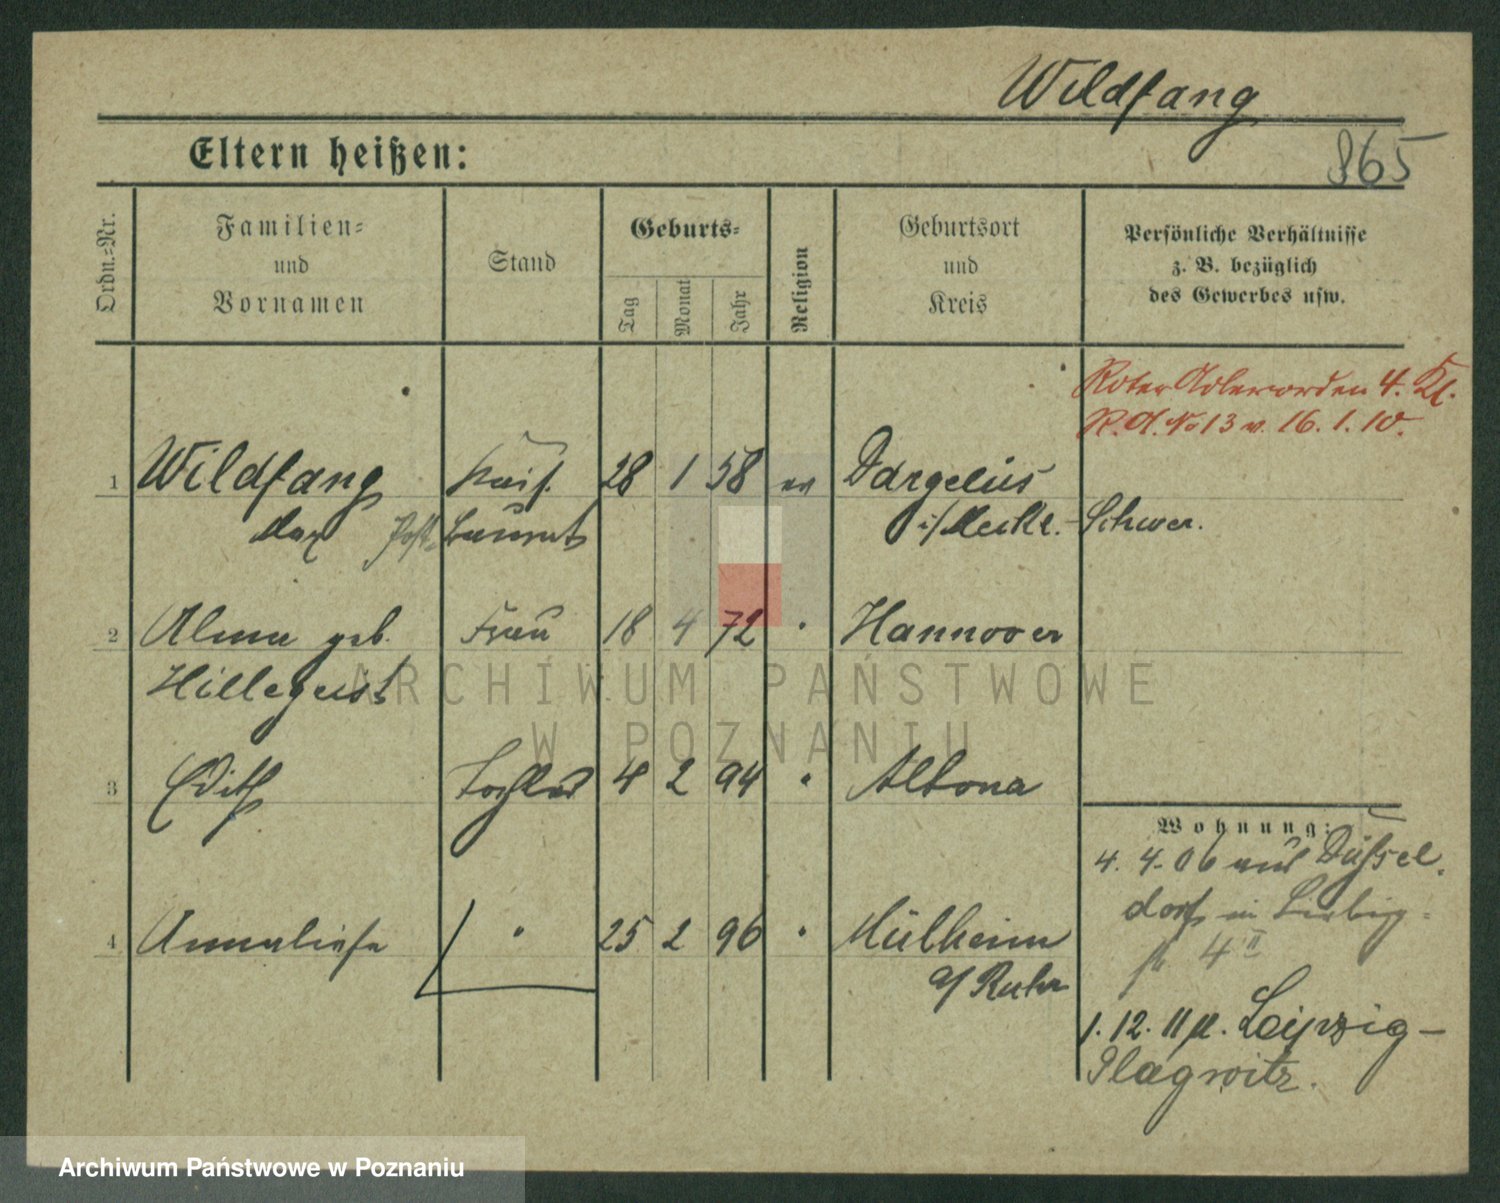 Wildfang
865
Eltern heißen:
Ordn.-Nr.
Familien-
und
Vornamen
Stand
Geburts-
Tag
Monat
Jahr
Religion
Geburtsort
und
Kreis
Persönliche Verhältnisse
z. B. bezüglich
des Gewerbes usw.
Roter Adlerorden 4. Kl.
R.A. No 13 v. 16. 1. 10.
1 Wildfang Kais. 28 1 58 ev Dargelüs
Max Post- Baurat i/Meckl.-Schwer.
2 Alma geb. Frau 18 4 72 " Hannover
Hillegeist
3 Edith Tochter 4 2 94 " Altona
Wohnung:
4. 4. 06 aus Düssel-
dorf in Liebig-
str 4 II
4 Annaliese " 25 2 96 " Mülheim
a/Ruhr
1. 12. 11 n. Leipzig-
Plagwitz.
ARCHIWUM PAŃSTWOWE
W POZNANIU
Archiwum Państwowe w Poznaniu